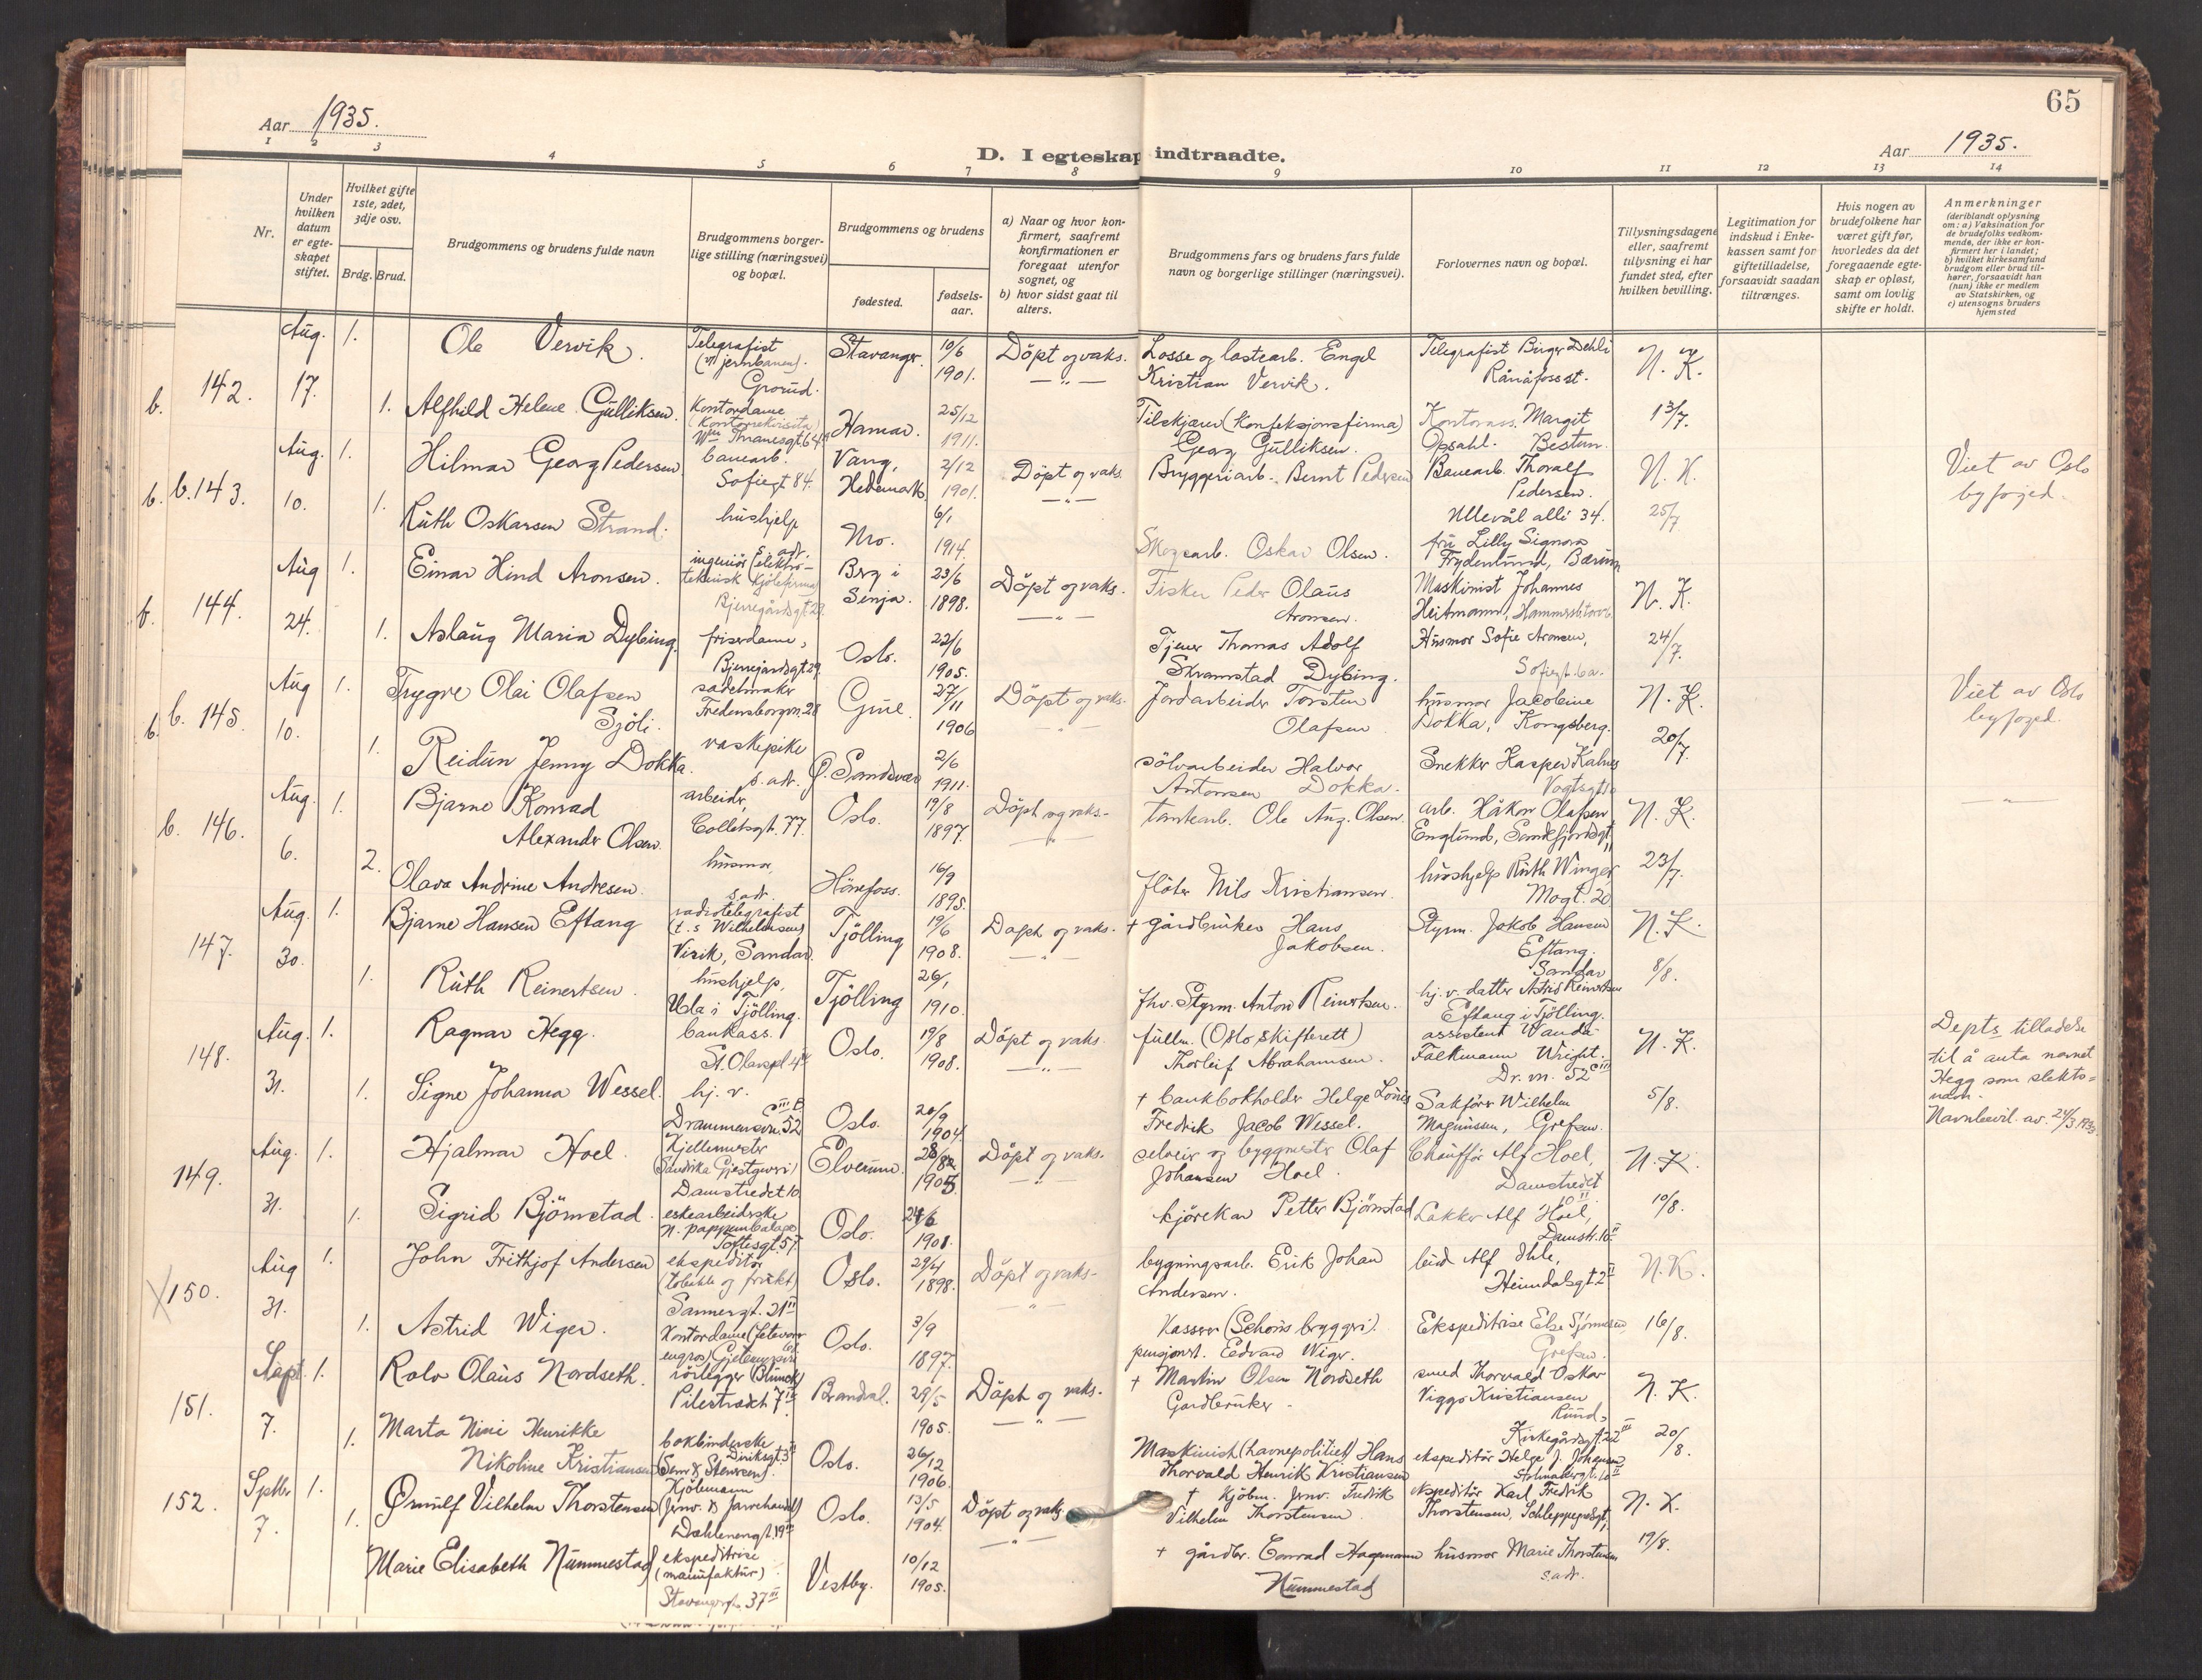 65
Aar 1935.
Aar 1935.
D. I egteskap indtraadte.
1 2 3 4 5 6 7 8 9 10 11 12 13 14
Nr.
Under hvilken datum er egteskapet stiftet.
Hvilket gifte 1ste, 2det, 3dje osv.
Brdg. Brud.
Brudgommens og brudens fulde navn
Brudgommens borgerlige stilling (næringsvei) og bopæl.
Brudgommens og brudens
fødested.
fødselsaar.
a) Naar og hvor konfirmert, saafremt konfirmationen er foregaat utenfor sognet, og
b) hvor sidst gaat til alters.
Brudgommens fars og brudens fars fulde navn og borgerlige stillinger (næringsvei).
Forlovernes navn og bopæl.
Tillysningsdagene eller, saafremt tillysning ei har fundet sted, efter hvilken bevilling.
Legitimation for indskud i Enkekassen samt for giftetilladelse, forsaavidt saadan tiltrænges.
Hvis nogen av brudefolkene har været gift før, hvorledes da det foregaaende egteskap er opløst, samt om lovlig skifte er holdt.
Anmerkninger
(deriblandt oplysning om: a) Vaksination for de brudefolks vedkommende, der ikke er konfirmert her i landet; b) hvilket kirkesamfund brudgom eller brud tilhører, forsaavidt han (hun) ikke er medlem av Statskirken, og c) utensogns bruders hjemsted
b. 142. Aug. 17. 1. Ole Vervik. Telegrafist (v/ jernbanen). Grorud. Stavanger. 10/6 1901. Döpt og vaks. Losse og lastearb. Engel Kristian Vervik. Telegrafist Birger Dehli Rånåfoss st. N. K.
1. Alfhild Helene Gulliksen. Kontordame (Kontorrekvisita) Wm Thranesgt. 64 Hamar. 25/12 1911. — " — Tilskjærer (Konfeksjonsfirma) Georg Gulliksen. Kontorass. Margit Opsahl. Bestun. 13/7.
b. b. 143. Aug. 10. 1. Hilmar Georg Pedersen banearb. Sofiegt 84. Vang, Hedemark. 2/12 1901. Döpt og vaks. Bryggeriarb. Bernt Pedersen Banearb. Thoralf Pedersen. Ullevål alle 34. N. K. Viet av Oslo byfoged.
1. Ruth Oskarsen Strand. hushjelp s. adr. Nro. 6/1 1914. — " — Skogsarb. Oskar Olsen. fru Lilly Signora Frydenlund, Bærum 25/7
b. 144. Aug 24. 1. Einar Hind Aronsen. ingeniör (elektroteknisk Kjölefirma) Bjerregårdsgt. 29 Brg i Senja. 23/6 1898. Döpt og vaks. Fisker Peder Olaus Aronsen. Maskinist Johannes Heitmann, N. K.
1. Aslaug Maria Dybing. friserdame, Bjerregårdsgt 29. Oslo. 22/6 1905. — " — Tjener Thomas Adolf Skramstad Dybing. Husmor Sofie Aronsen, Sofiegt. 6a. 24/7.
b. b. 145. Aug 10. 1. Trygve Olai Olafsen Sjöli. sadelmaker Fredensborgvn. 28 Grue. 27/11 1906 Döpt og vaks. Jordarbeider Torsten Olafsen husmor Jacobine Dokka, Kongsberg. N. K. Viet av Oslo byfoged.
1. Reidun Jenny Dokka. vaskepike s. adr. Ø. Sandsvær 2/6 1911. — " — sölvarbeider Halvor Antonsen Dokka. Snekker Kasper Kalnes Vogtsgt. 20/7.
b. 146. Aug. 6. 1. Bjarne Konrad Alexander Olsen. arbeider, Colletsgt. 77. Oslo. 19/8 1897. Döpt og vaks. tomtearb. Ole Aug. Olsen. arb. Håkon Olafsen Englund, Sandefjordsgt. 11 N. K. — " —
2. Olava Andrine Andresen. husmor, s adr. Hönefoss. 16/9 1895. — " — flöter Nils Kristiansen. hushjelp Ruth Winger Mogt. 20 23/7.
147. Aug. 30. 1. Bjarne Hansen Eftang radiotelegrafist (t. s Wilhelmsen) Virik, Sandar. Tjölling 19/6 1908. Döpt og vaks. † gårdbruker Hans Jakobsen. Styrm. Jakob Hansen Eftang. Sandar N. K.
1. Ruth Reinertsen. hushjelp, Ula i Tjölling. Tjölling 26/1 1910. — " — fhv. Styrm. Anton Reinertsen. hj. v. datter Astrid Reinertsen Eftang i Tjölling. 8/8.
148. Aug. 31. 1. Ragnar Hegg. bankass. St. Olavspl 4 Oslo. 19/8 1908. Döpt og vaks. fullm. (Oslo skifterett) Thorleif Abrahamsen. assistent Wanda Falkmann Wright. Dr. vn. 52 C III N. K. Depts tilladelse til å anta navnet Hegg som slektsnavn. Navnbevil. av. 24/3. 1933.
1. Signe Johanna Wessel. hj. v. Drammensvn. 52 C III B Oslo. 20/9 1904. — " — † bankbokholder Helge Lönis Fredrik Jacob Wessel. Sakförer Wilhelm Magnussen, Grefsen. 5/8.
149. Aug. 31. 1. Hjalmar Hoel. Kjellermester (Sandvika Gjestgiveri) Damstredet 10 Elverum. 28/8 1905. Döpt og vaks. selveier og byggmester Olaf Johansen Hoel. Chauffør Alf Hoel, Damstredet 10 II N. K.
1. Sigrid Björnstad. eskearbeiderske n. pappemballage Toftesgt. 57. Oslo. 24/6 1901. — " — kjörekar Petter Björnstad Lakker Alf Hoel, Damstr. 10 II 10/8.
X 150. Aug 31. 1. John Frithjof Andersen ekspeditör (tobakk og frukt) Sannergt. 31 II Oslo. 29/4 1898. Döpt og vaks. bygningsarb. Erik Johan Andersen. Alf Ihle, Heimdalsgt. 2 II N. K.
1. Astrid Wiger. Kontordame (fetevarer engros) Oslo. 3/9 1897. — " — Kasserer (Schous bryggeri). pensjonert. Edvard Wiger. Ekspeditrise Else Grefsen. 16/8.
151. Sept. 7. 1. Rolv Olaus Nordseth. rörlegger (Blunck) Pilestredet 7 Brandval. 29/5 1905. Döpt og vaks. † Martin Olsen Nordseth Gardbruker. smed Thorvald Oskar Viggo Kristiansen Ruud, Kirkegårdsgt. 22 III N. K.
1. Marta Nini Henrikke Nikoline Kristiansen bokbinderske (Sem & Stenersen). Diriksgt. 3 Oslo. 26/12 1906. — " — Maskinist (havnepolitiet) Hans Thorvald Henrik Kristiansen ekspeditör Helge J. Johansen 20/8.
152. Septbr 7. 1. Ørnulf Vilhelm Thorstensen Kjöbmann (Jernv. & farvehandel) Dælenengt. 19 Oslo. 13/5 1904. Döpt og vaks. † Kjöbm. Jernv. Fredrik Vilhelm Thorstensen ekspeditör Karl Fredrik Thorstensen, Schleppegrelsgt. N. K.
1. Marie Elisabeth Nummestad ekspeditrise (manufaktur). Stavangergt. 37 III Vestby. 10/12 1905. — " — † gårdbr. Conrad Hagemann Nummestad husmor Marie Thorstensen s. adr. 19/8.